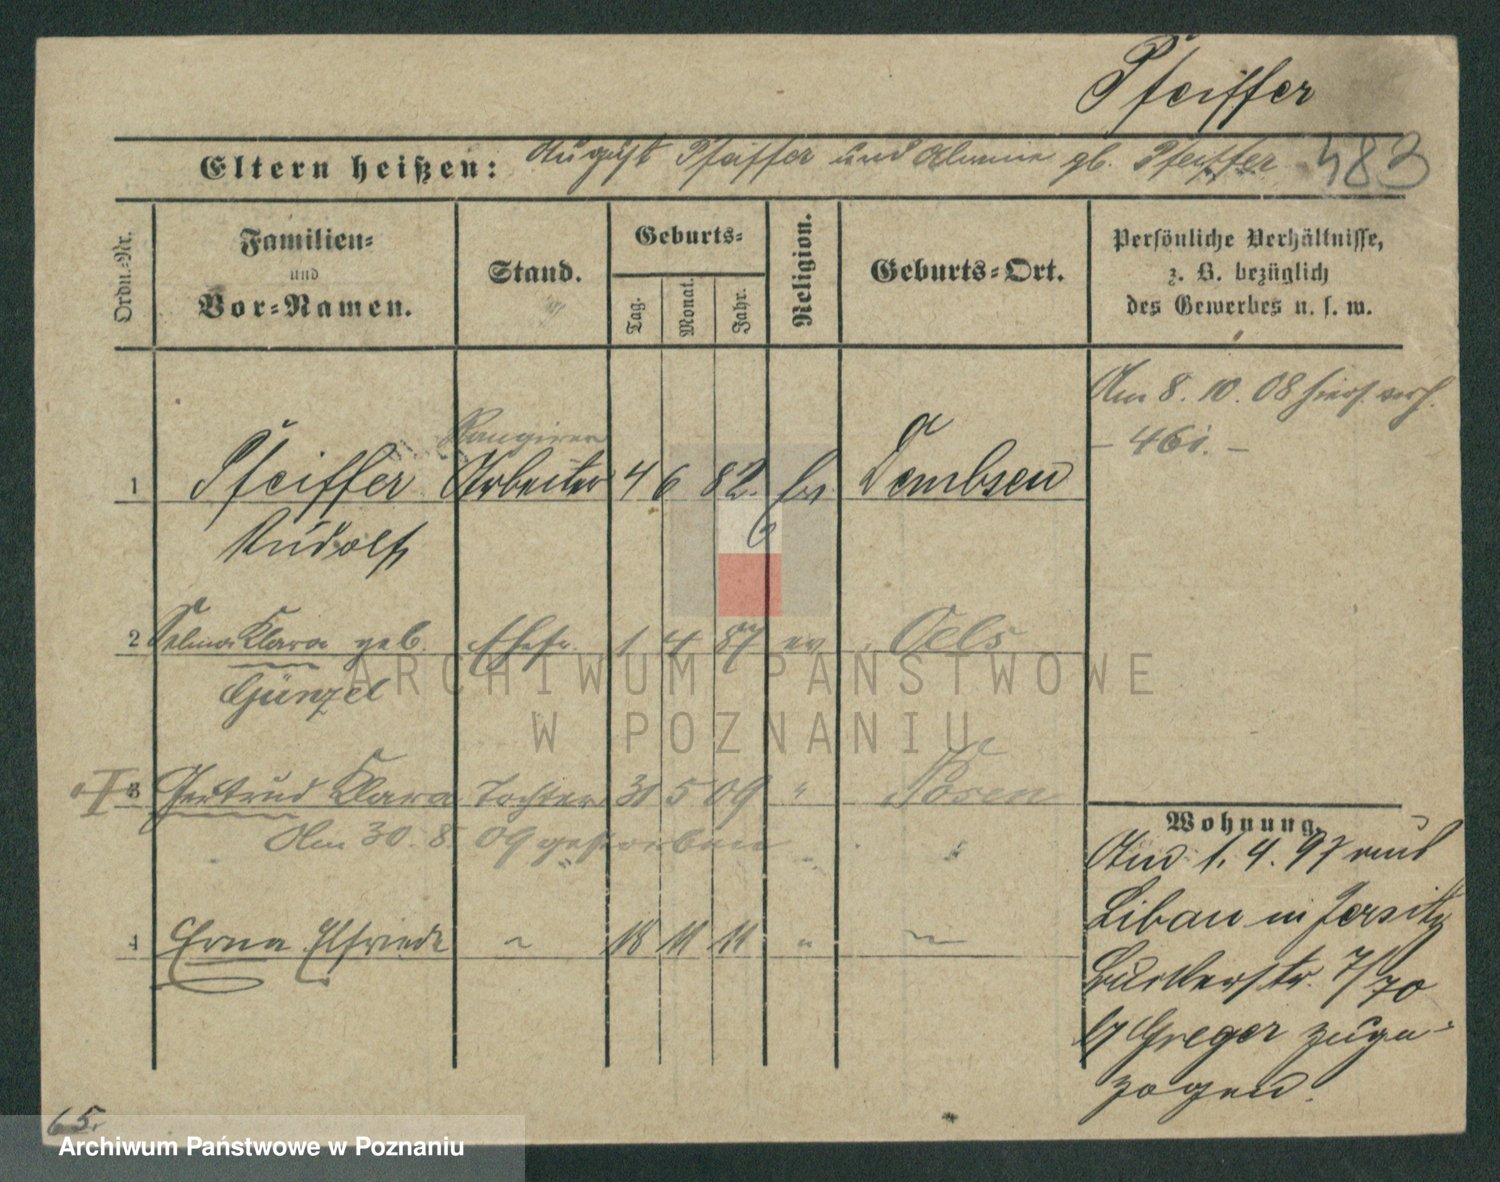 Pfeiffer
Eltern heißen: August Pfeiffer und gb. Pfeiffer 483
Ordn.-Nr.
Familien- und Vor-Namen.
Stand.
Geburts-
Tag.
Monat.
Jahr.
Religion.
Geburts-Ort.
Persönliche Verhältnisse,
z. B. bezüglich
des Gewerbes u. s. w.
Am 8. 10. 08 hier verh.
- 461. -
Rangierer
1 Pfeiffer Arbeiter 4 6 82. ev Dembsen
Rudolf
2 Selma Klara geb. Ehefr. 1 4 87 ev Oels
Günzel
I 3 Gertrud Klara Tochter 31 5 09 " Posen
Am 30. 8. 09 gestorben
4 Erna Elfriede 18 11 11 "
Wohnung.
Am 1. 4. 97 aus
Libau in Jersitz
7/70
b/ Greger zuge-
zogen.
65.
ARCHIWUM PAŃSTWOWE
W POZNANIU
Archiwum Państwowe w Poznaniu